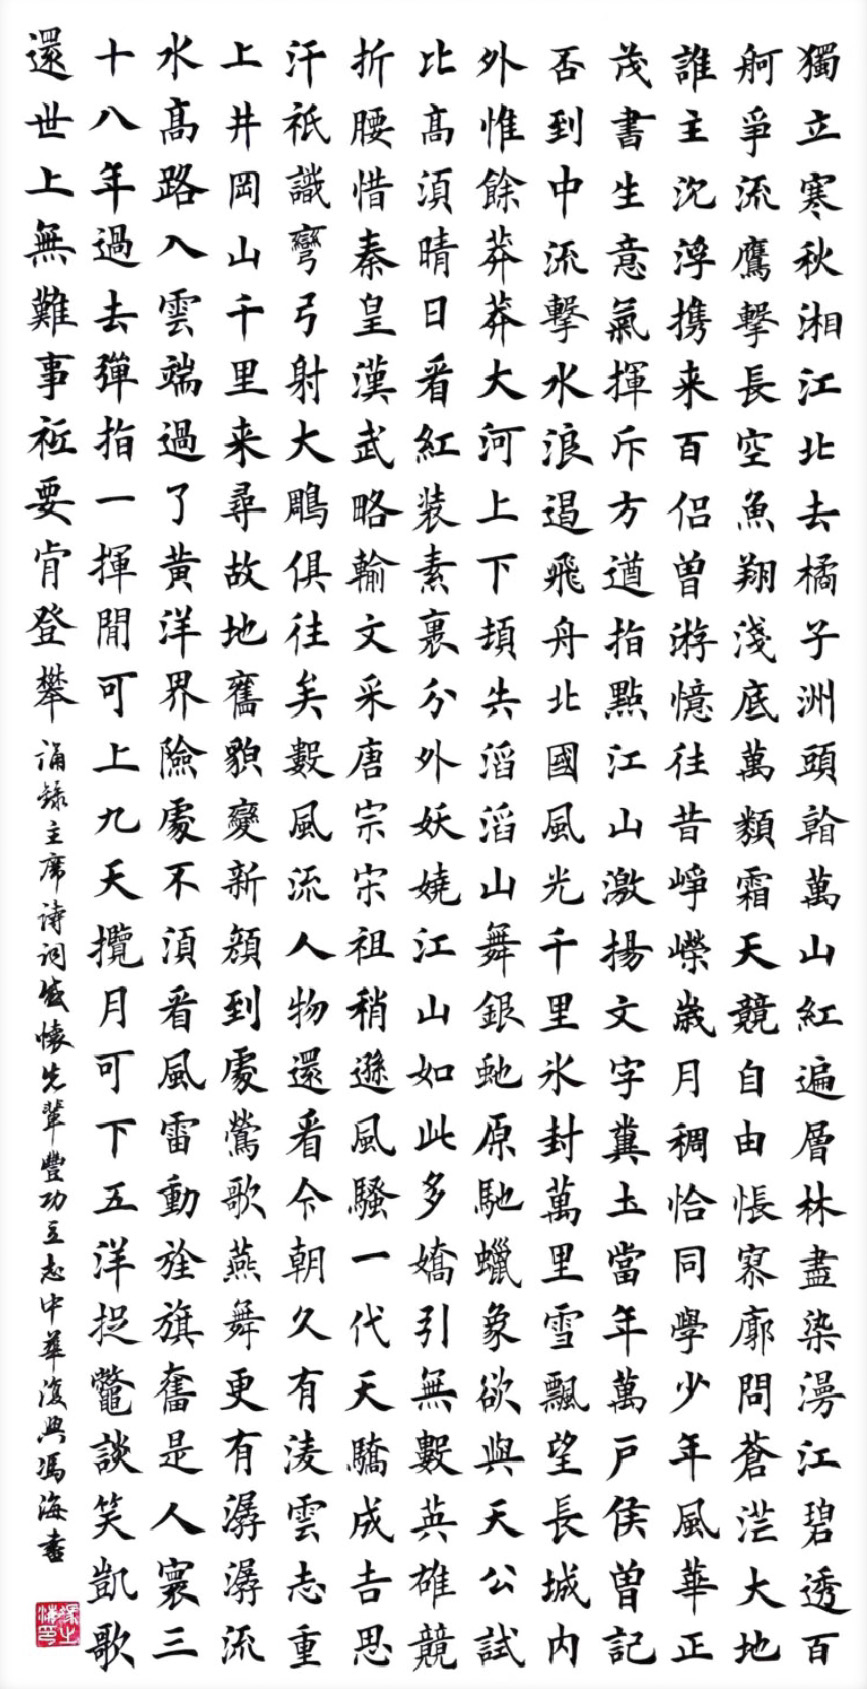 獨立寒秋湘江北去橘子洲頭看萬山紅遍層林盡染漫江碧透百
舸爭流鷹擊長空魚翔淺底萬類霜天競自由悵寥廓問蒼茫大地
誰主沈浮携来百侶曾游憶往昔崢嶸歲月稠恰同學少年風華正
茂書生意氣揮斥方遒指點江山激揚文字糞土當年萬戶侯曾記
否到中流擊水浪遏飛舟北國風光千里氷封萬里雪飄望長城内
外惟餘莽莽大河上下頓失滔滔山舞銀虵原馳蠟象欲與天公試
比高須晴日看紅装素裹分外妖嬈江山如此多嬌引無數英雄競
折腰惜秦皇漢武略輸文采唐宗宋祖稍遜風騷一代天驕成吉思
汗祇識彎弓射大鵰俱往矣數風流人物還看今朝久有淩雲志重
上井岡山千里来尋故地舊貌變新顏到處鶯歌燕舞更有潺潺流
水高路入雲端過了黄洋界險處不須看風雷動旌旗奮是人寰三
十八年過去彈指一揮間可上九天攬月可下五洋捉鱉談笑凱歌
還世上無難事祇要肯登攀
誦錄主席诗词感懷先輩豐功立志中華復興馮海書